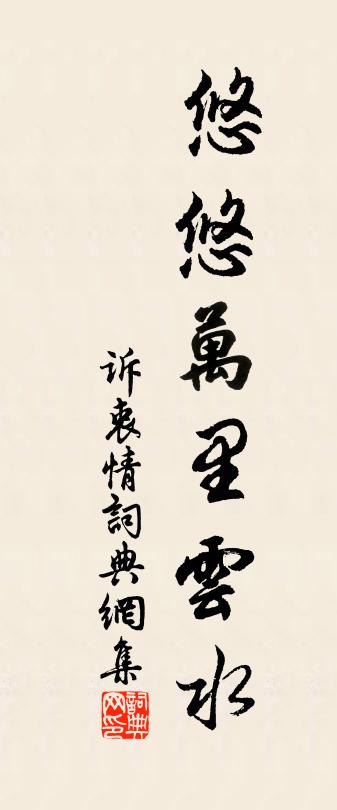 悠悠萬里雲水
诉衷情詞典網集
詞典网印